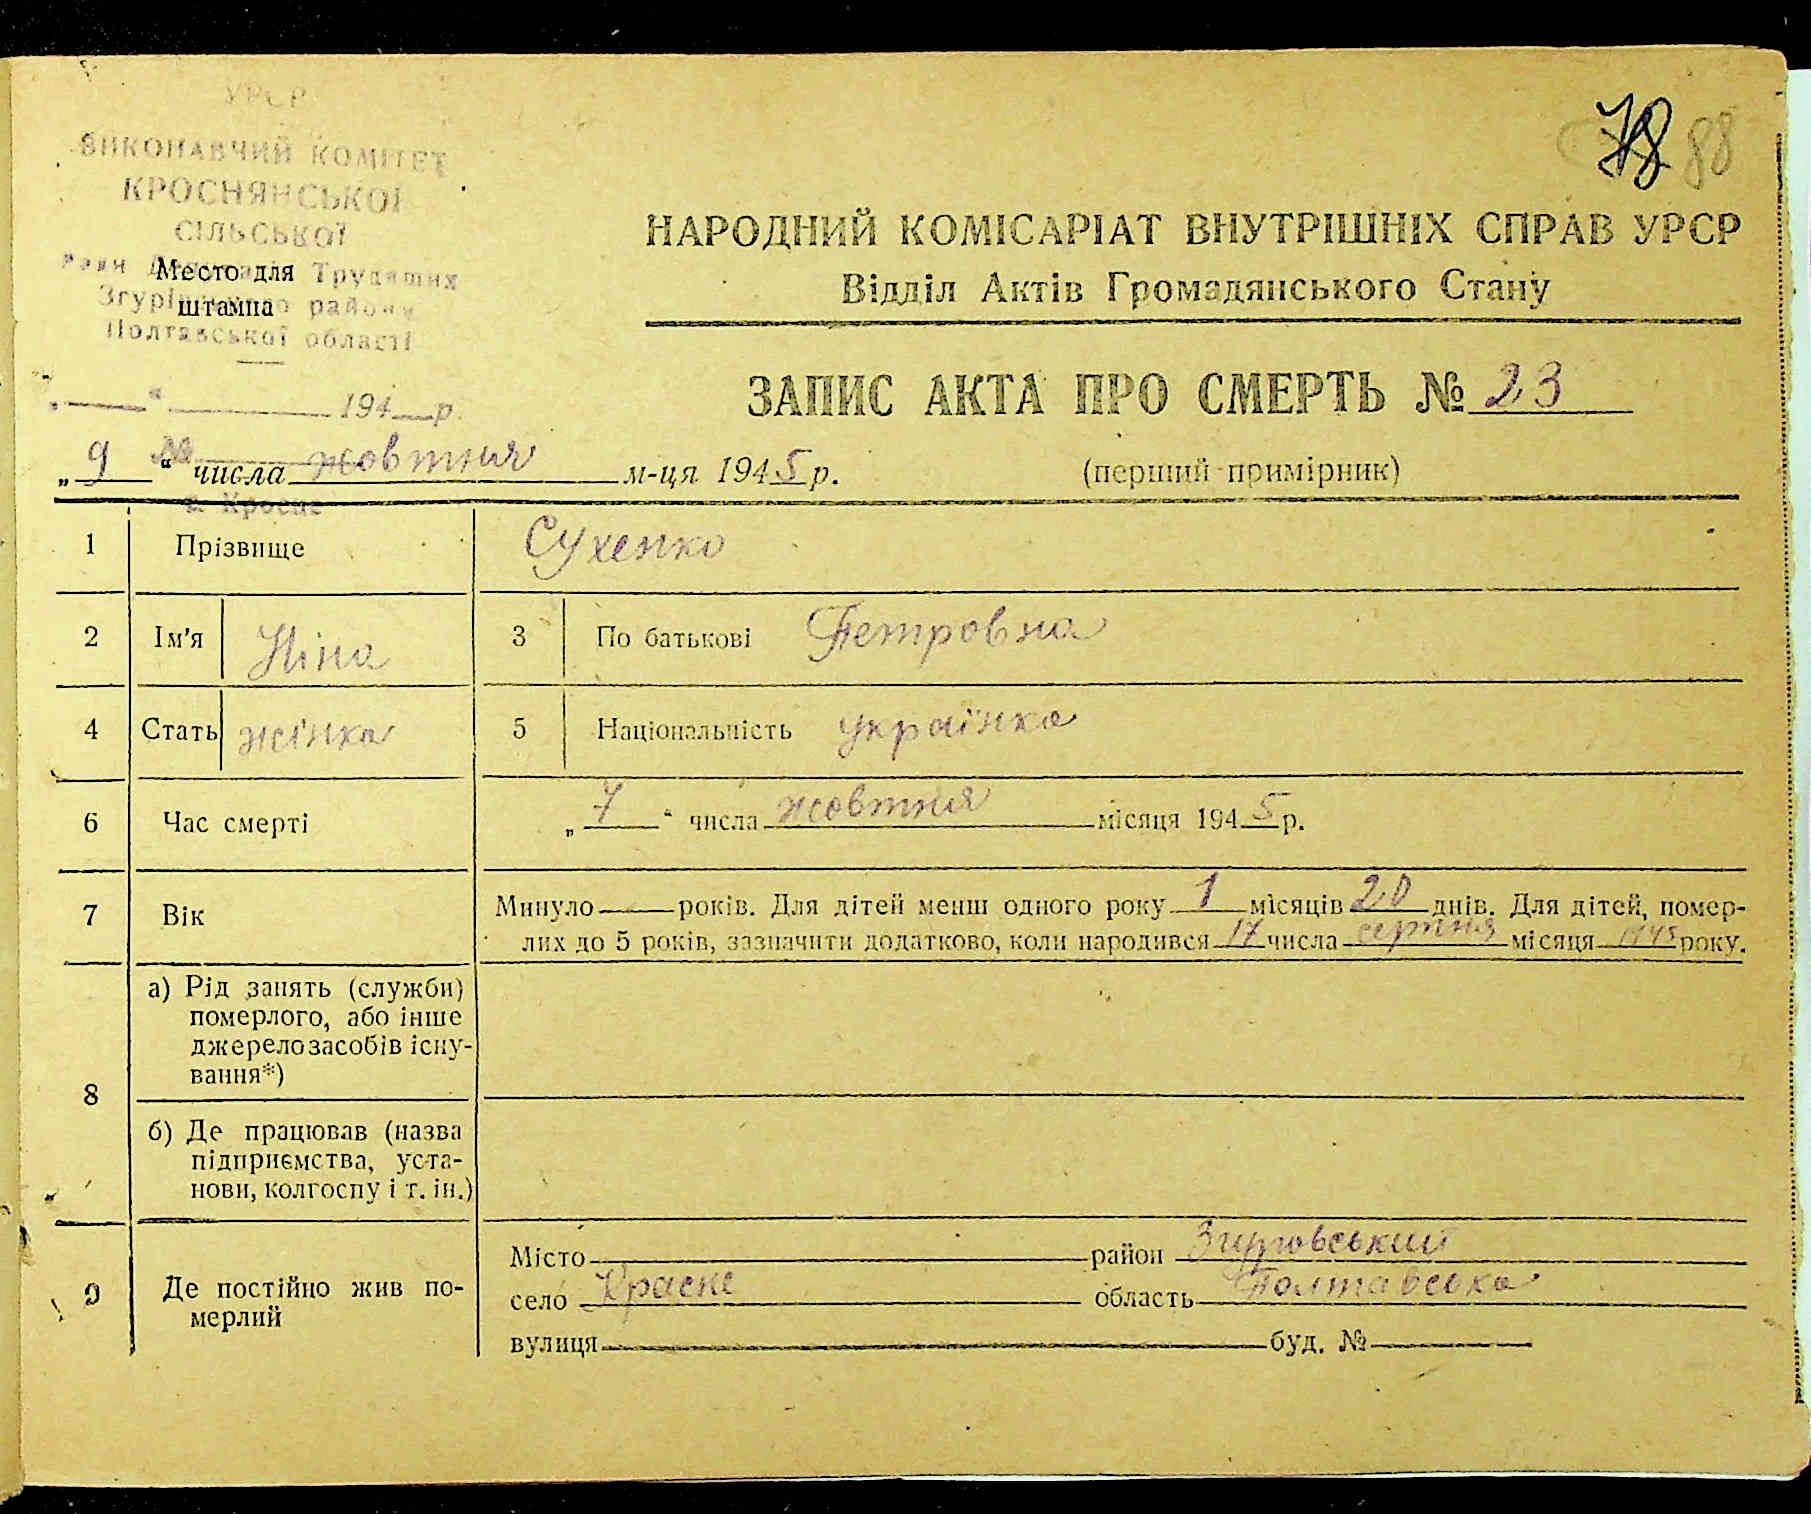 УРСР
ВИКОНАВЧИЙ КОМІТЕТ
КРОСНЯНСЬКОЇ
СІЛЬСЬКОЇ
Ради Трудящих
Место для
Згурівського району
штампа
Полтавської області
88
НАРОДНИЙ КОМІСАРІАТ ВНУТРІШНІХ СПРАВ УРСР
Відділ Актів Громадянського Стану
„ “ 194 р.
ЗАПИС АКТА ПРО СМЕРТЬ № 23
№
„ 9 “ числа жовтня м-ця 1945 р.
(перший примірник)
с. Кросне
1 Прізвище Сухенко
2 Ім'я Ніна 3 По батькові Петровна
4 Стать жінка 5 Національність українка
6 Час смерті „ 7 “ числа жовтня місяця 1945 р.
7 Вік Минуло — років. Для дітей менш одного року 1 місяців 20 днів. Для дітей, помер-
лих до 5 років, зазначити додатково, коли народився 17 числа серпня місяця 1945 року.
8 а) Рід занять (служби)
померлого, або інше
джерело засобів існу-
вання*)
б) Де працював (назва
підприємства, уста-
нови, колгоспу і т. ін.)
9 Де постійно жив по-
мерлий
Місто район Згуровський
село Красне область Полтавська
вулиця буд. №